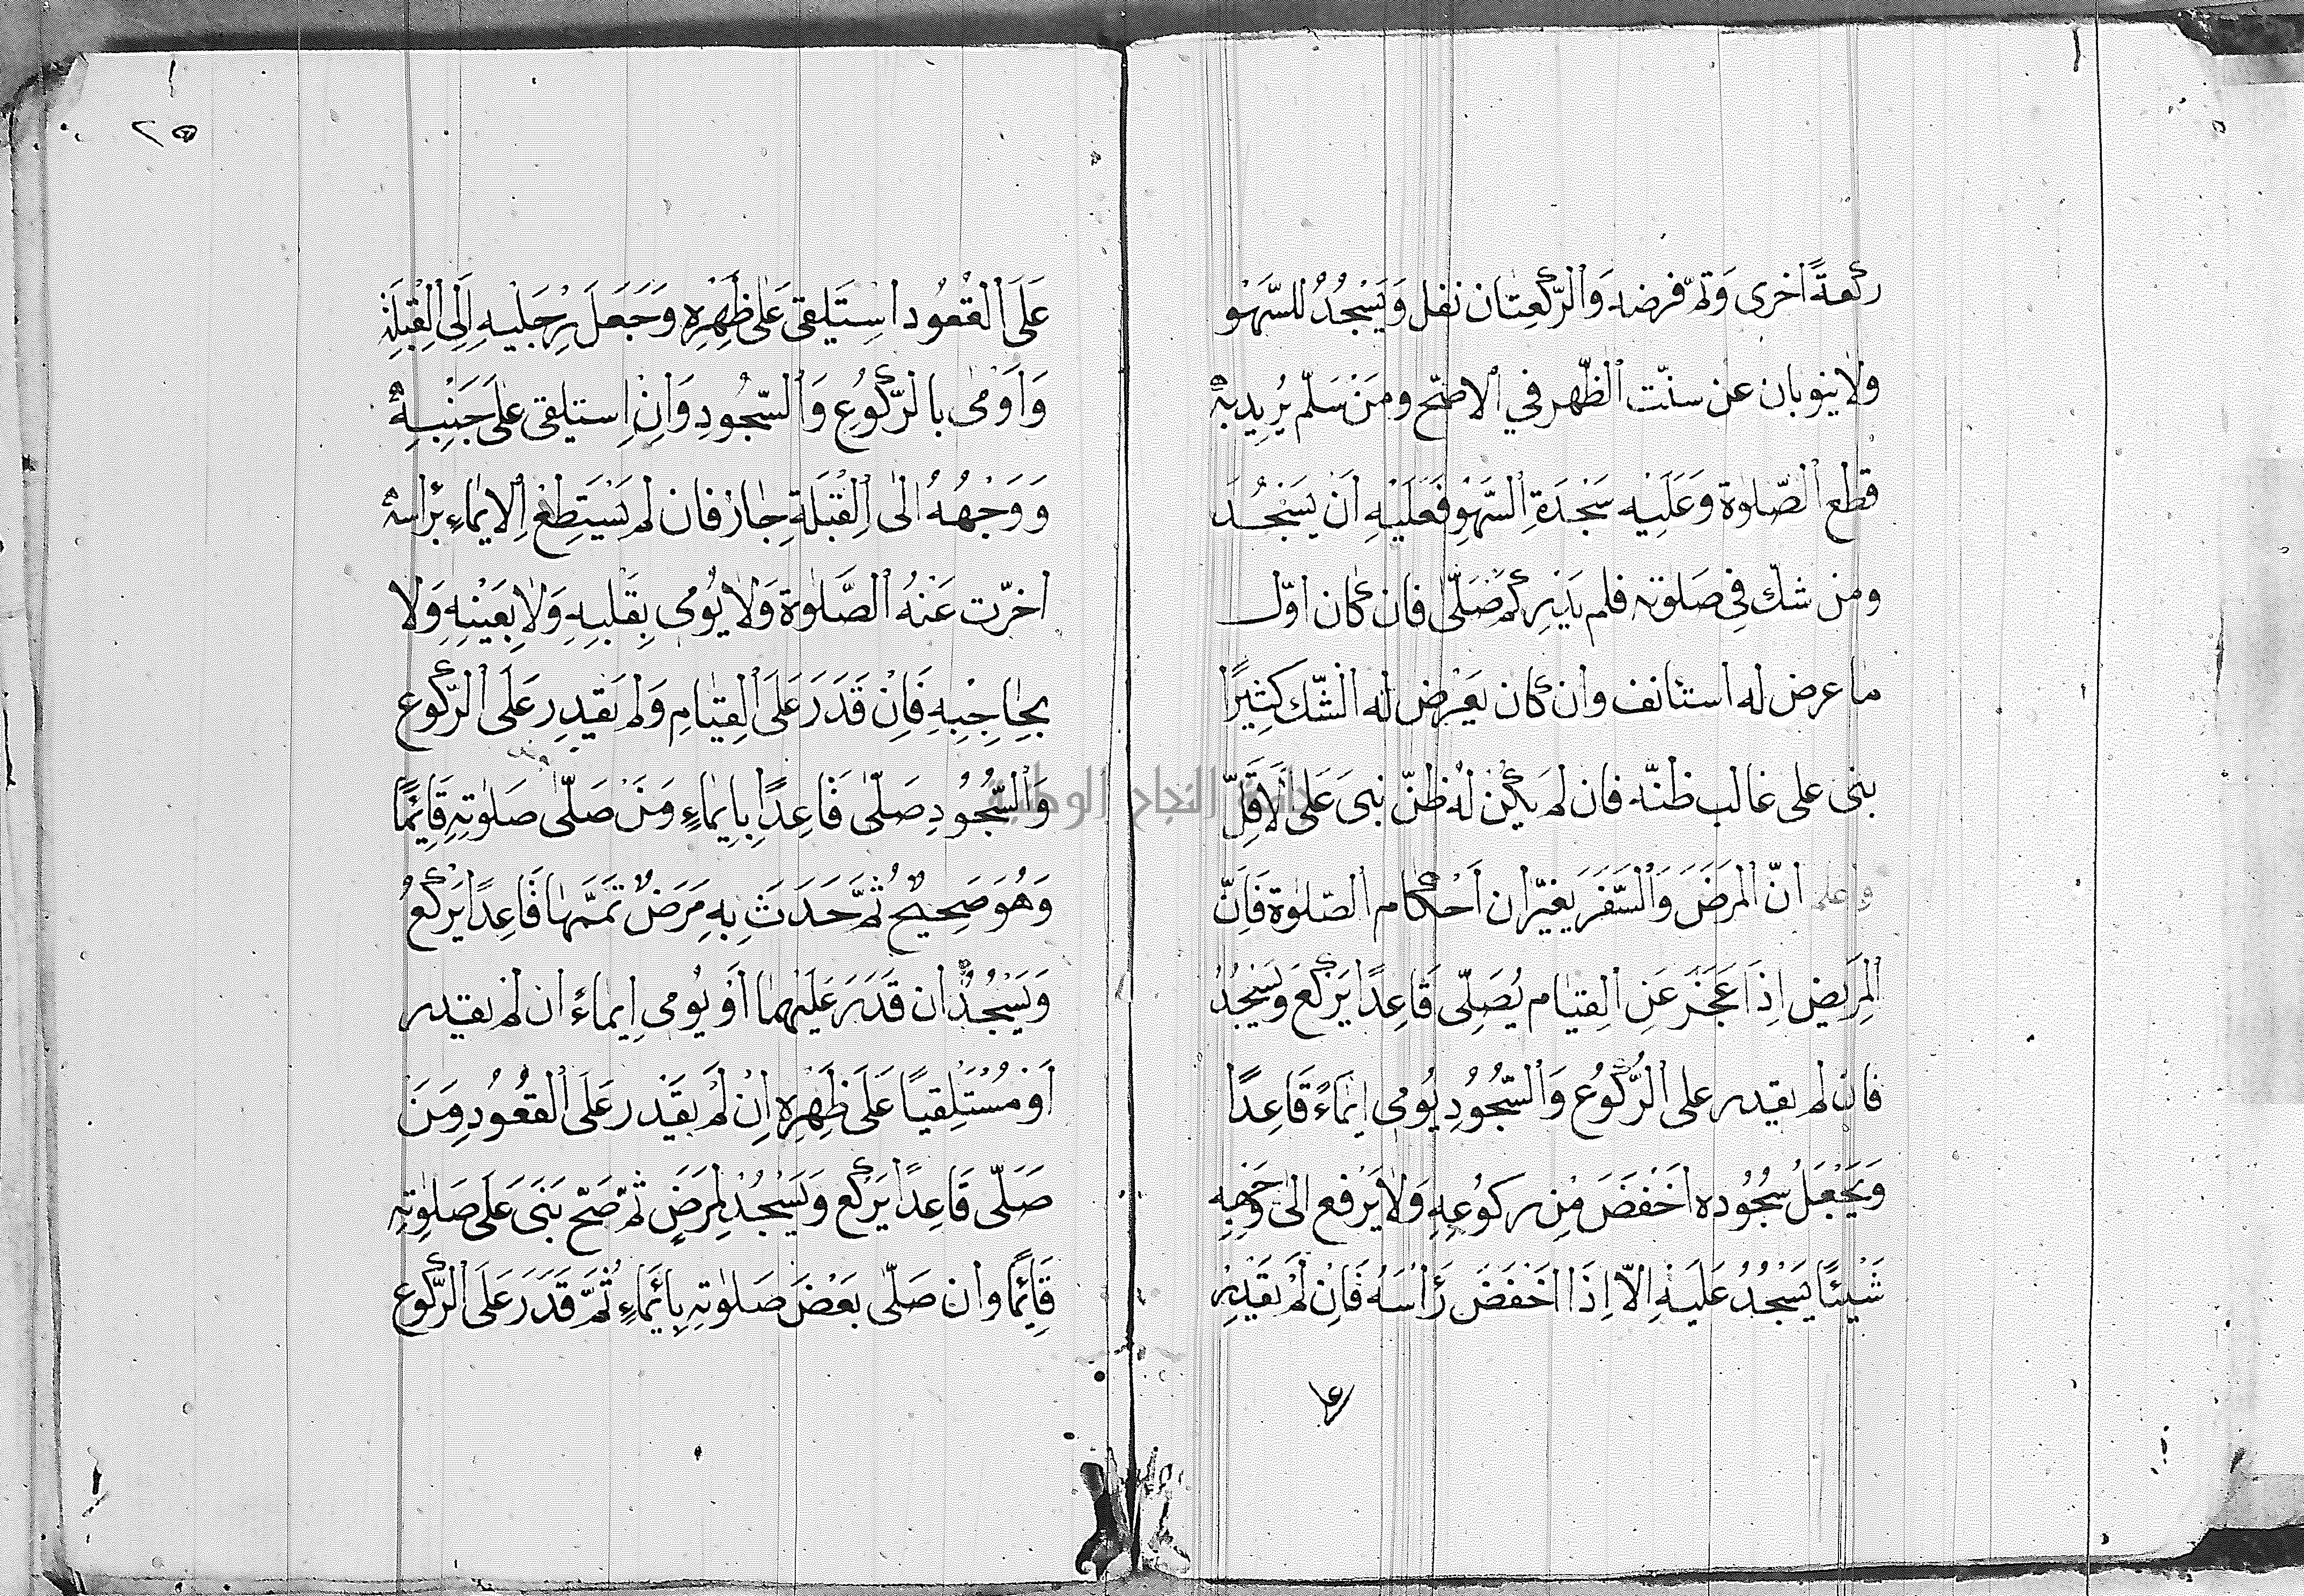 ركعةً اخرى وَتمّ فرضه وَالرّكعتان نفل وَيَسْجُدُ للسَّهْو
ولا ينوبان عن سنّت الظّهر في الاصَحّ ومَنْ سَلّم يُرِيد بهٖ
قطع الصّلوة وَعَليه سَجْدَةِ السَّهْوِ فَعَلَيْهِ اَنْ يَسْجُدَ
ومن شكّ فِي صَلوته فلم يَدْرِ كم صَلّىٰ فان كان اوّل
ما عرض له استانف وان كان يَعْرِض له الشّك كَثِيرًا
بنى على غالب ظنّه فان لم يكُنْ لهُ ظنّ بنىَ عَلى الَاقلّ
واعلم انّ المرَضَ وَالسَّفَرَ يغيّران اَحْكام الصّلوة فَاِنّ
المَرِيض اِذَا عَجَزَ عَنِ القيَام يُصَلّى قَاعِدًا يَرْكَعَ وَيَسْجُدُ
فان لم يقدر على الرُّكُوع وَالسُّجُودِ يُومى اِيمَاءً قَاعِدًا
وَيَجْعَلُ سُجُوده اَخْفَضَ مِن ركوُعِهِ وَلا يَرْفع الى وَجْهِهِ
شَيْئًا يَسْجُدُ عَلَيْهِ الّا اِذَا اخَفَضَ رَأسَهُ فَاِنْ لَمْ يَقْدِرْ
عا
٢٥
عَلَى القُعُود استَلقى عَلى ظَهْرِه وَجَعَلَ رِجْلَيْهِ اِلَى القِبْلَةِ
وَاَوْمىٰ بالرّكُوعِ وَالسّجُودِ وَاِنِ استلقى عَلى جَنْبِهِ
وَوَجْهُهُ الى القِبْلَةِ جَاز فان لم يَسْتَطِعْ الايمَاءِ برَأسه
اخرّت عَنْهُ الصَّلوة وَلا يُومى بِقَلْبِهِ وَلا بِعَيْنِهِ وَلا
بحَاجِبِهِ فَاِنْ قَدَرَ عَلَى القِيَامِ وَلم يَقدِر عَلَى الرّكُوع
وَالسُّجُودِ صَلّى قَاعِدًا بِايمَاءٍ وَمَنْ صَلّىٰ صَلوٰتِهِ قَائِمًا
وَهُوَ صَحِيحٌ ثُمَّ حَدَثَ بِهِ مَرَضٌ تَمَمّهَا قَاعِدًا يَرْكَعُ
وَيَسْجُدُ ان قَدَرَ عَلَيْهمَا اَوْ يُومى اِيماءً ان لم يقدر
اَوْ مُسْتَلْقِيًا عَلَى ظَهْرِه اِنْ لَمْ يَقْدر عَلَى القعُود وَمَنْ
صَلّى قَاعِدًا يَرْكع وَيَسْجُدُ لِمَرَضٍ ثم صَحّ بَنَى عَلَى صَلوٰتِهِ
قَائِمًا وان صَلّى بَعْضَ صَلوٰتهِ بِاِيمَاءٍ ثُمَّ قَدَرَ عَلَى الرّكُوع
جامعة النجاح الوطنية